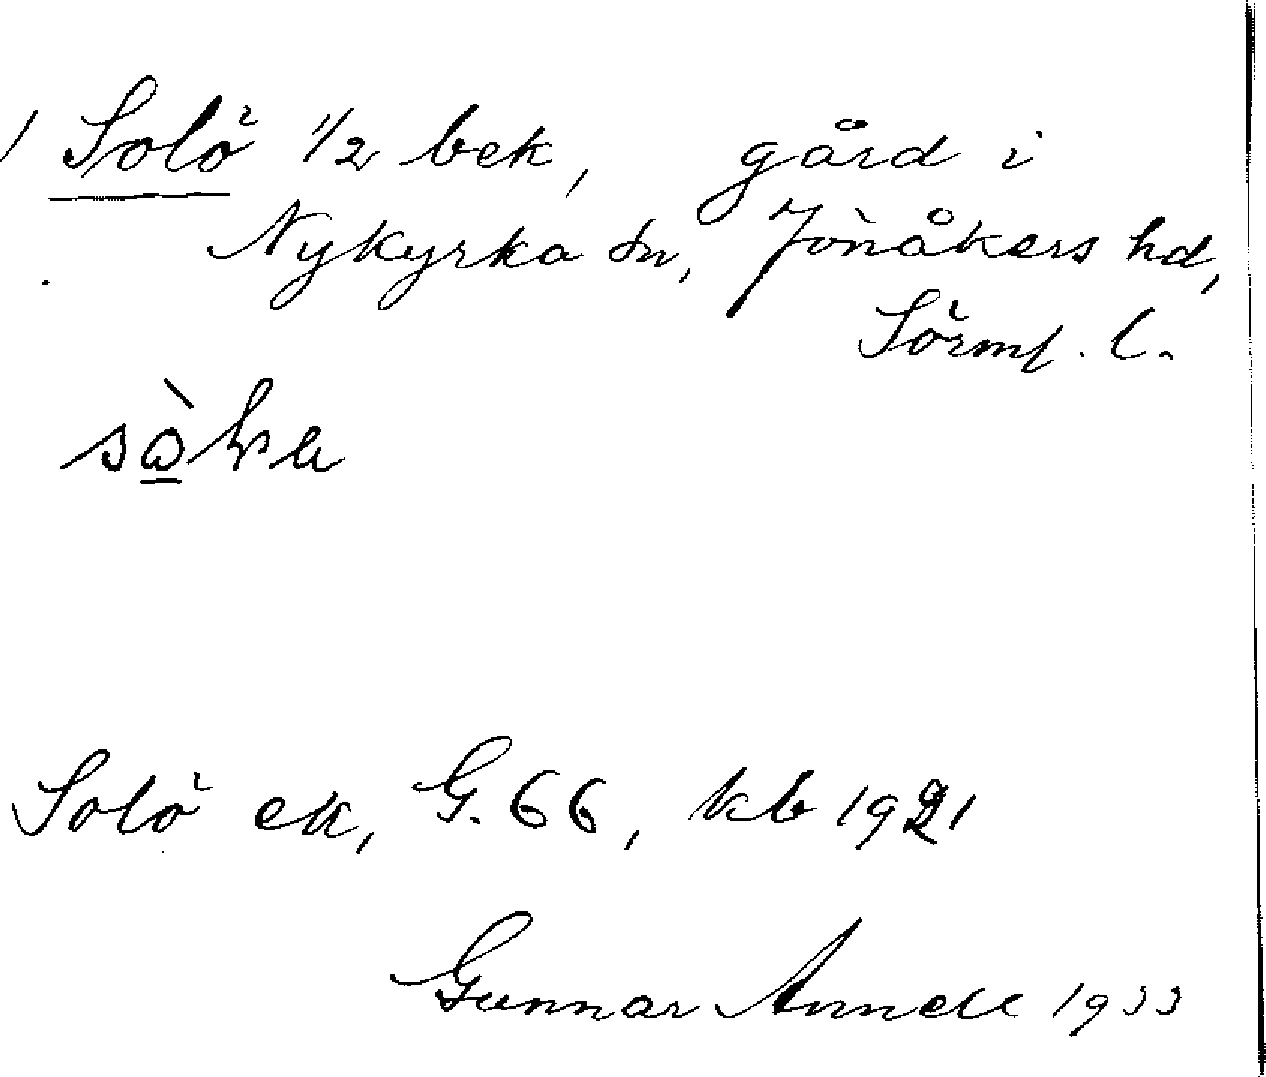 / Solö 1/2 bek, gård i
Nykyrka sn, Jönåkers hd,
Sörml. l.
Solö ek, G. 66, kb 1921
Gunnar Annell 1933